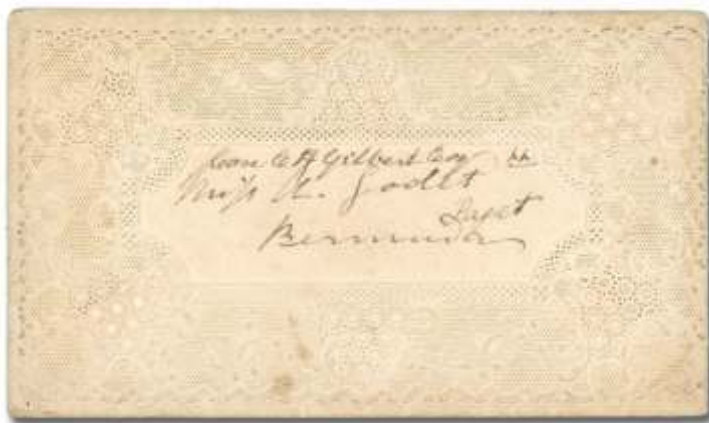 Care Gilbert Esq
Miss A. Godet
Paget
Bermuda